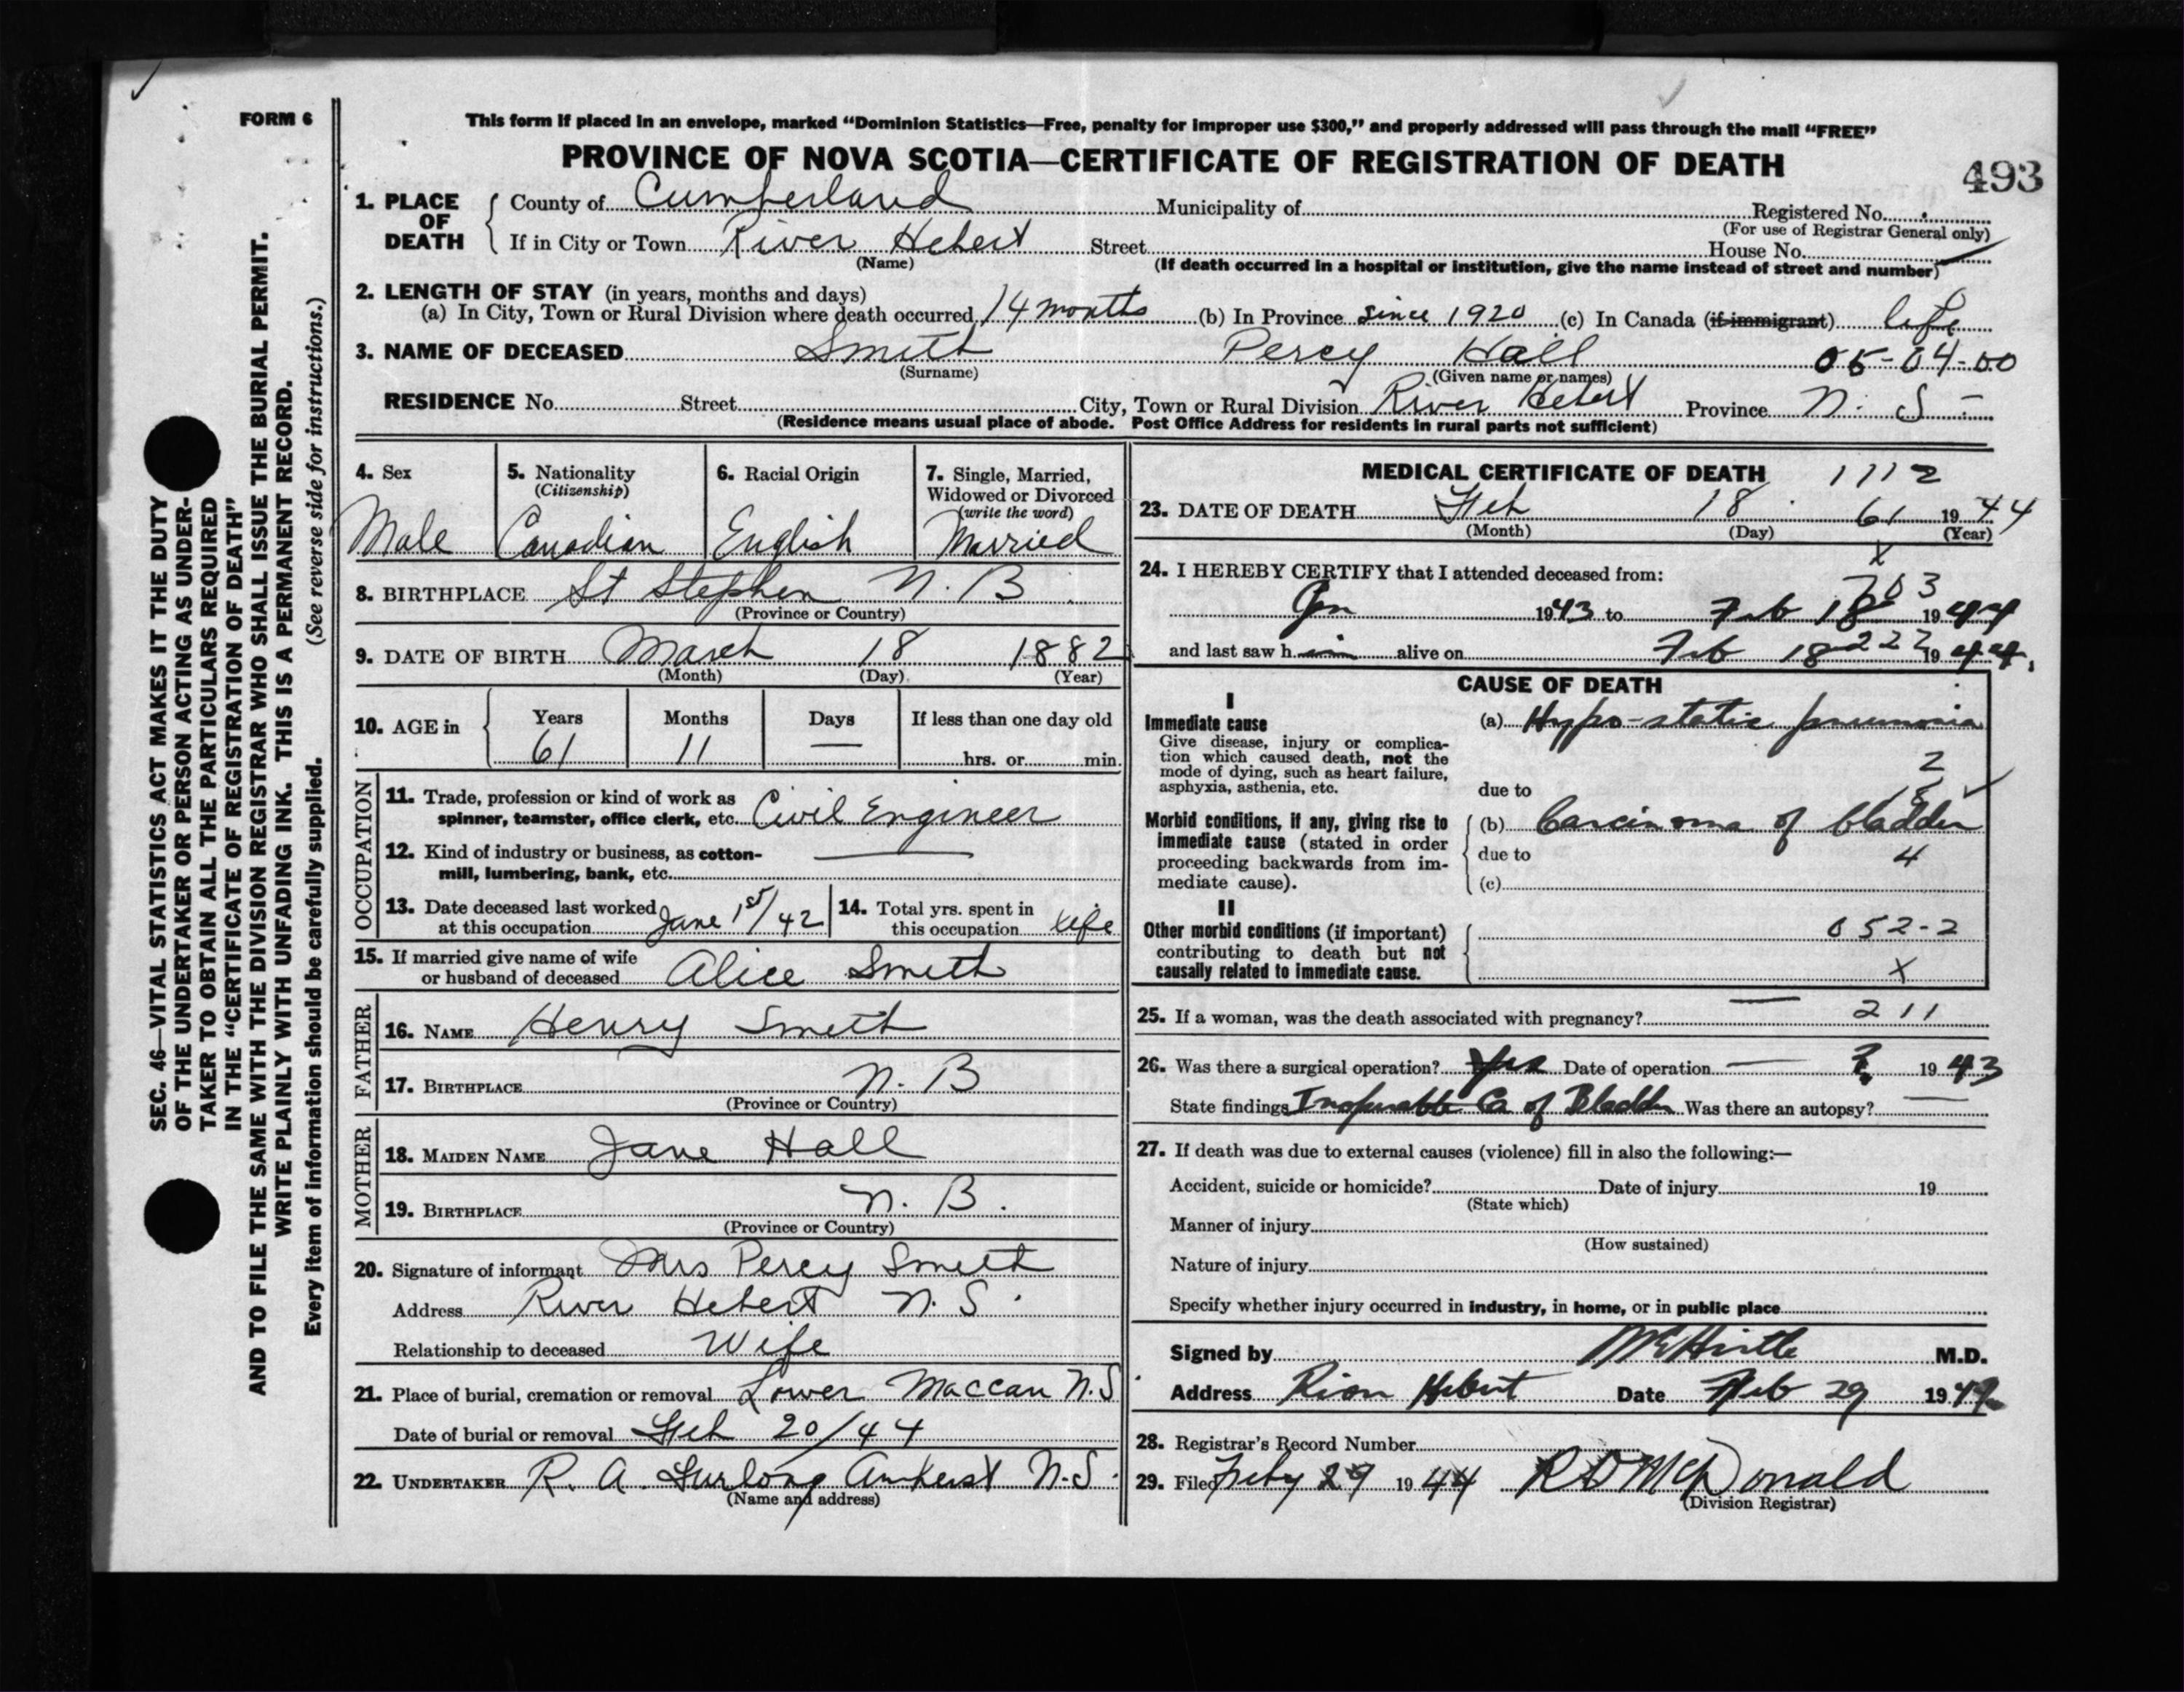 FORM 6
This form if placed in an envelope, marked “Dominion Statistics—Free, penalty for improper use $300,” and properly addressed will pass through the mail “FREE”
PROVINCE OF NOVA SCOTIA—CERTIFICATE OF REGISTRATION OF DEATH
493
1. PLACE OF DEATH County of Cumberland Municipality of Registered No.
(For use of Registrar General only)
If in City or Town River Hebert Street House No.
(Name) (If death occurred in a hospital or institution, give the name instead of street and number)
2. LENGTH OF STAY (in years, months and days)
(a) In City, Town or Rural Division where death occurred 14 months (b) In Province since 1920 (c) In Canada (if immigrant) life
3. NAME OF DECEASED Smith Percy Hall 05-04-00
(Surname) (Given name or names)
RESIDENCE No. Street City, Town or Rural Division River Hebert Province N. S -
(Residence means usual place of abode. Post Office Address for residents in rural parts not sufficient)
4. Sex
Male
5. Nationality
(Citizenship)
Canadian
6. Racial Origin
English
7. Single, Married,
Widowed or Divorced
(write the word)
Married
8. BIRTHPLACE St Stephen N. B
(Province or Country)
9. DATE OF BIRTH March 18 1882
(Month) (Day) (Year)
10. AGE in Years Months Days If less than one day old
61 11 — hrs. or min.
OCCUPATION
11. Trade, profession or kind of work as
spinner, teamster, office clerk, etc. Civil Engineer
12. Kind of industry or business, as cotton-
mill, lumbering, bank, etc. —
13. Date deceased last worked
at this occupation June 1st/42
14. Total yrs. spent in
this occupation life
15. If married give name of wife
or husband of deceased Alice Smith
FATHER
16. NAME Henry Smith
17. BIRTHPLACE N. B
(Province or Country)
MOTHER
18. MAIDEN NAME Jane Hall
19. BIRTHPLACE N. B.
(Province or Country)
20. Signature of informant Mrs Percy Smith
Address River Hebert N. S.
Relationship to deceased Wife
21. Place of burial, cremation or removal Lower Maccan N.S
Date of burial or removal Feb 20/44
22. UNDERTAKER R. A. Furlong Amherst N.S.
(Name and address)
MEDICAL CERTIFICATE OF DEATH 1112
23. DATE OF DEATH Feb 18 61 1944
(Month) (Day) (Year)
x
24. I HEREBY CERTIFY that I attended deceased from:
703
Jan 1943 to Feb 18 1944
and last saw h im alive on Feb 18 222 1944.
CAUSE OF DEATH
I
Immediate cause (a) Hypo-static pneumonia
Give disease, injury or complica-
tion which caused death, not the
mode of dying, such as heart failure,
asphyxia, asthenia, etc. due to
2
Morbid conditions, if any, giving rise to
immediate cause (stated in order
proceeding backwards from im-
mediate cause).
(b) Carcinoma of bladder
due to 4
(c)
II
Other morbid conditions (if important)
contributing to death but not
causally related to immediate cause.
052-2
X
25. If a woman, was the death associated with pregnancy? — 211
26. Was there a surgical operation? Yes Date of operation — ? 1943
State findings Inoperable Ca of Bladder Was there an autopsy? —
27. If death was due to external causes (violence) fill in also the following:—
Accident, suicide or homicide? Date of injury 19
(State which)
Manner of injury
(How sustained)
Nature of injury
Specify whether injury occurred in industry, in home, or in public place
Signed by Hirtle M.D.
Address River Hebert Date Feb 29 1944
28. Registrar's Record Number
29. Filed Feby 29 1944 R D McDonald
(Division Registrar)
SEC. 46—VITAL STATISTICS ACT MAKES IT THE DUTY
OF THE UNDERTAKER OR PERSON ACTING AS UNDER-
TAKER TO OBTAIN ALL THE PARTICULARS REQUIRED
IN THE “CERTIFICATE OF REGISTRATION OF DEATH”
AND TO FILE THE SAME WITH THE DIVISION REGISTRAR WHO SHALL ISSUE THE BURIAL PERMIT.
WRITE PLAINLY WITH UNFADING INK. THIS IS A PERMANENT RECORD.
Every item of information should be carefully supplied. (See reverse side for instructions.)